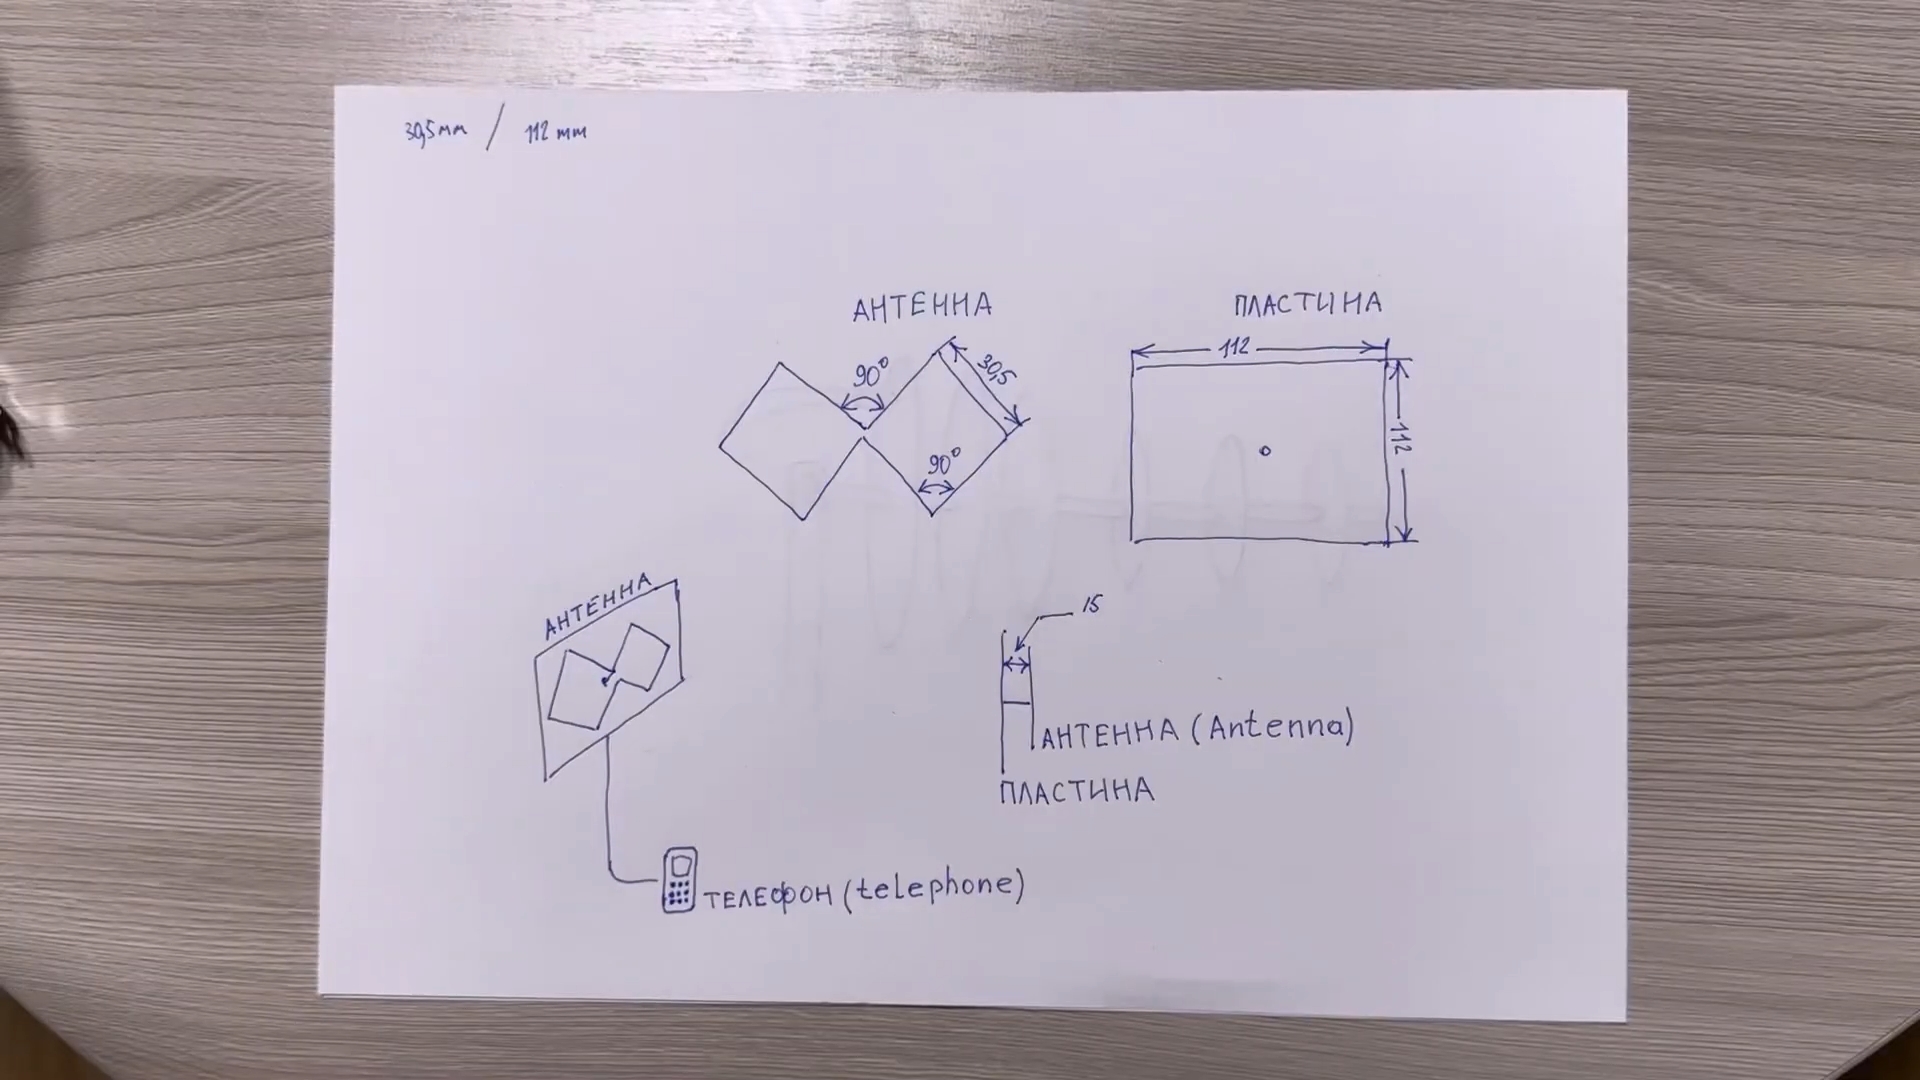 30,5мм / 112 mm
АНТЕННА
90°
30,5
90°
ПЛАСТИНА
112
112
АНТЕННА
15
АНТЕННА (Antenna)
ПЛАСТИНА
ТЕЛЕФОН (telephone)